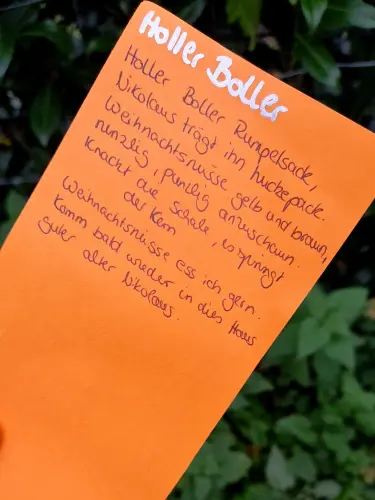 Holler Boller
Holler Boller Rumpelsack,
Nikolaus trägt ihn huckepack.
Weihnachtsnüsse gelb und braun,
runzlig, punzlig anzuschaun.
Knackt die Schale, springt
der Kern
Weihnachtsnüsse ess ich gern.
Komm bald wieder in dies Haus
guter alter Nikolaus.